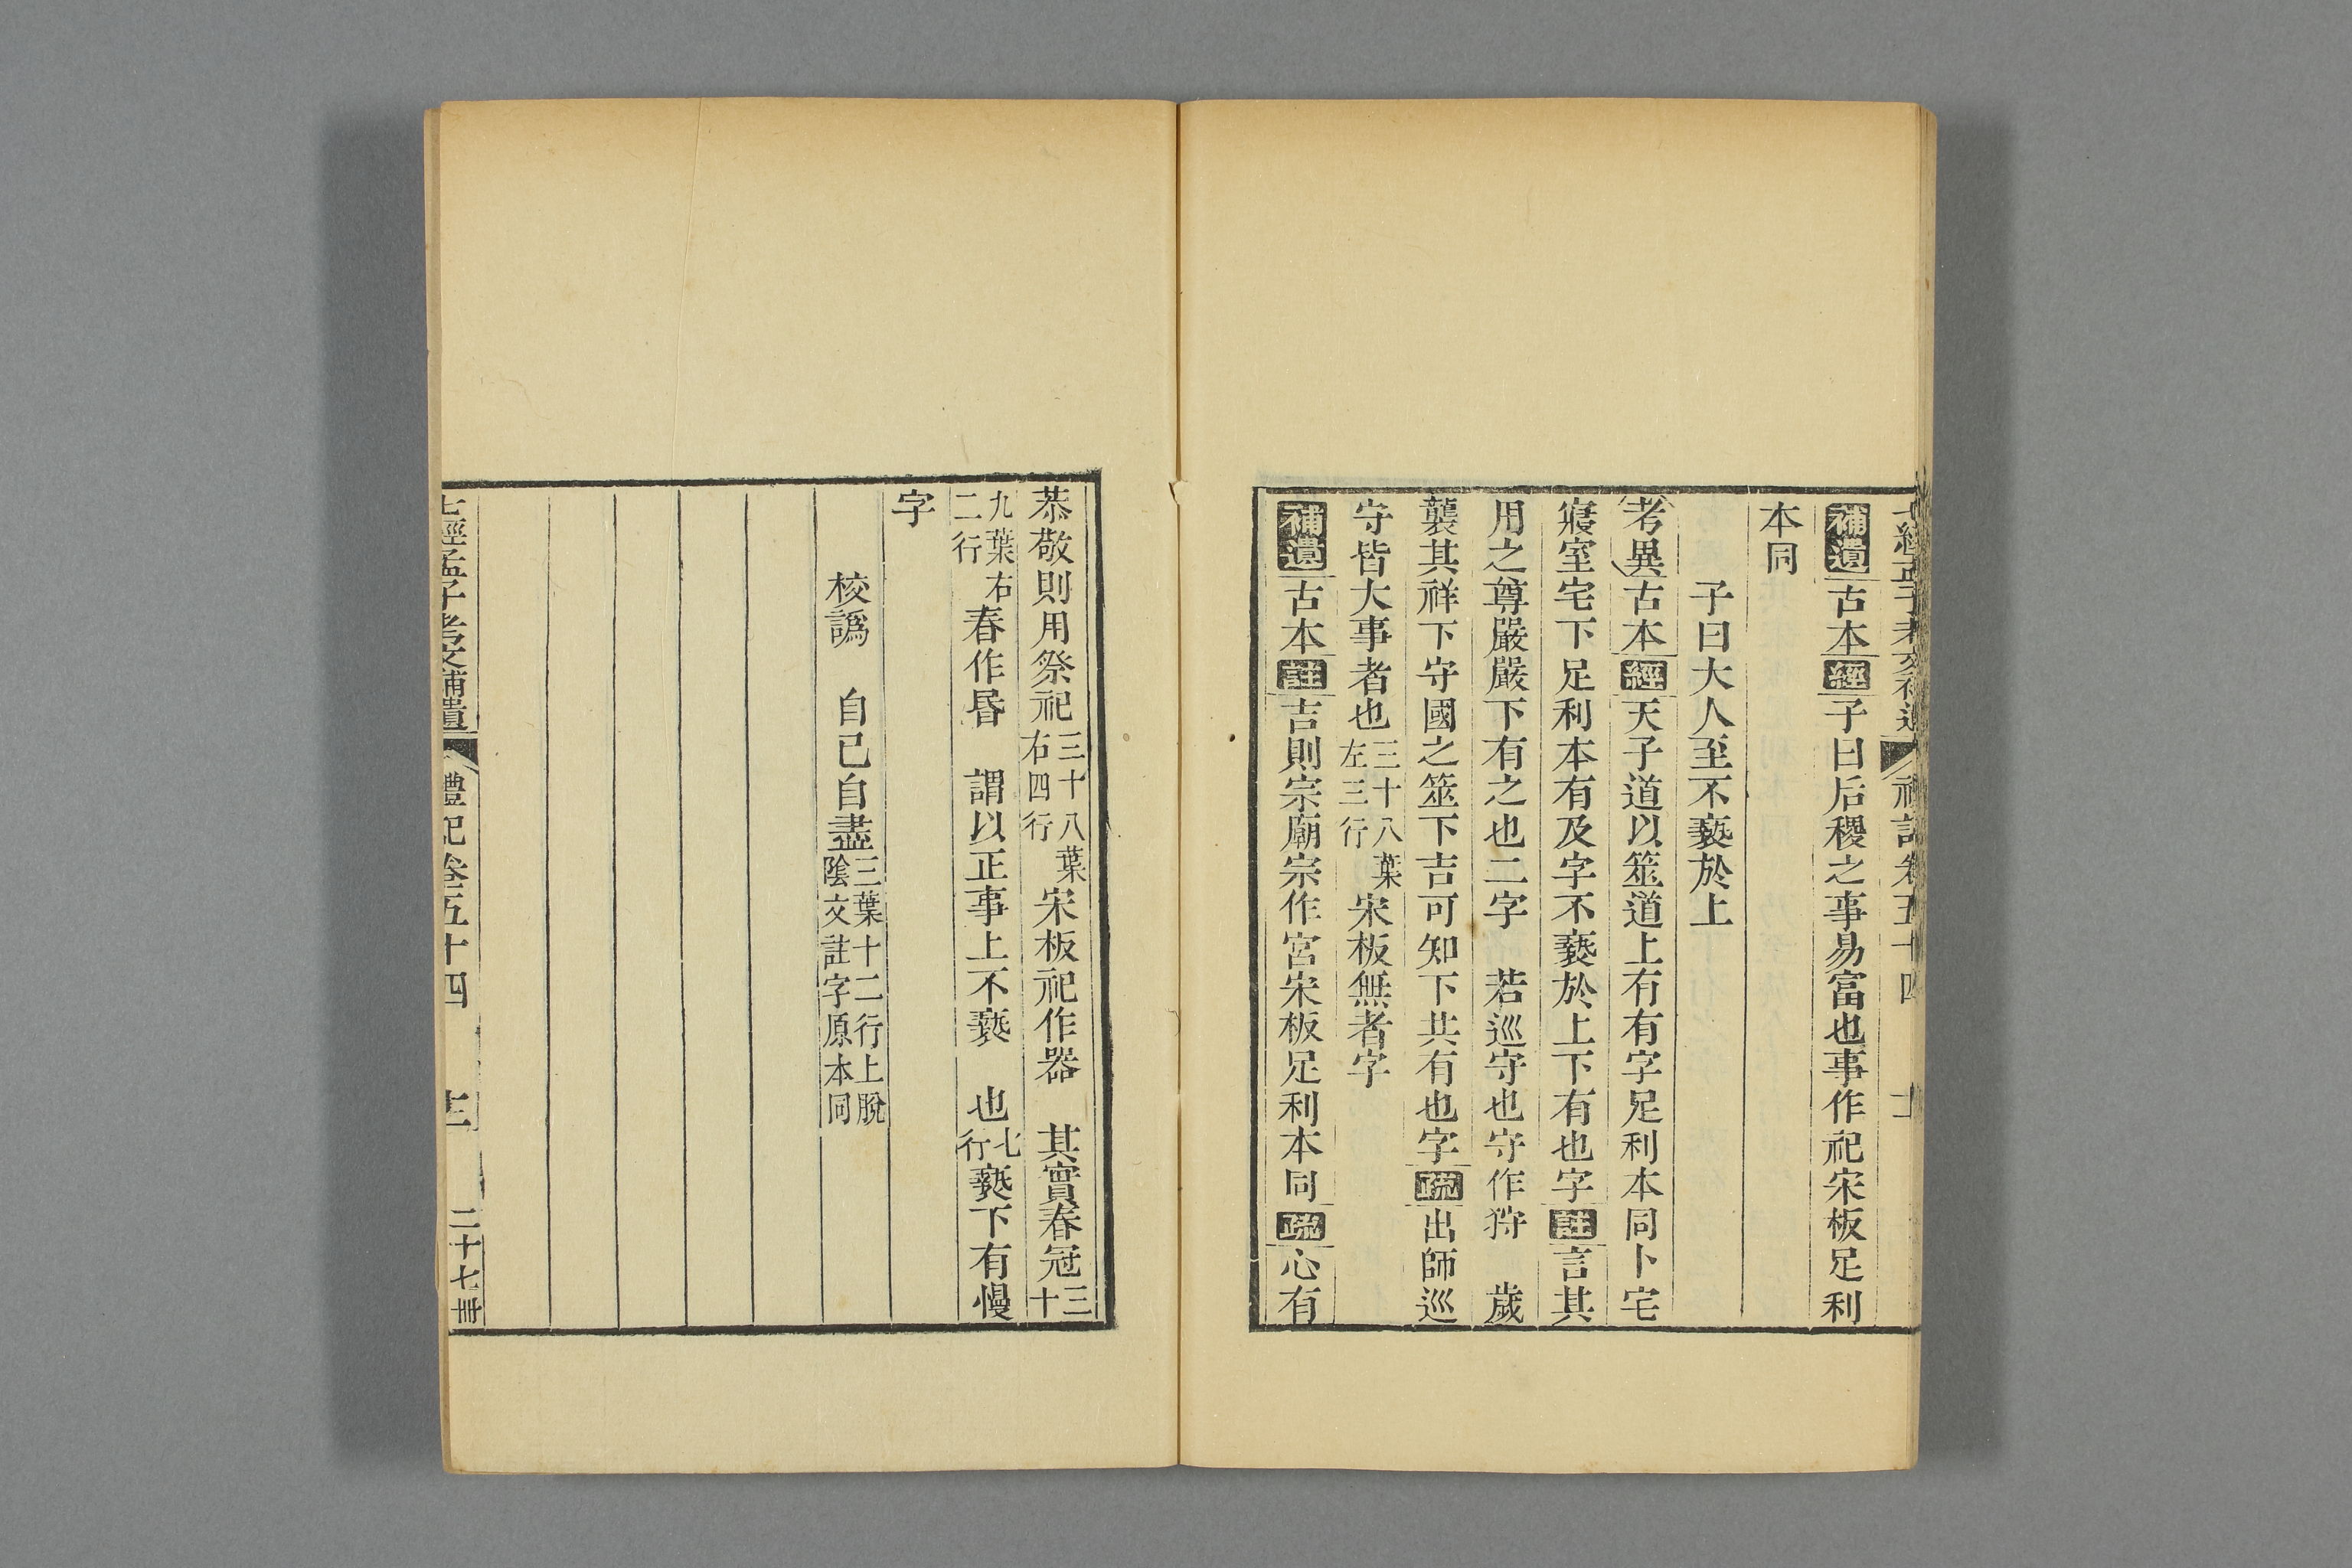 七經孟子考文補遺 禮記卷五十四 十二
補遺古本經子曰后稷之事易富也事作祀宋板足利
本同
子曰大人至不褻於上
考異古本經天子道以筮道上有有字足利本同卜宅
寢室宅下足利本有及字不褻於上下有也字註言其
用之尊嚴嚴下有之也二字 若巡守也守作狩 歲
襲其祥下守國之筮下吉可知下共有也字疏出師巡
守皆大事者也三十八葉左三行宋板無者字
補遺古本註吉則宗廟宗作宮宋板足利本同疏心有
恭敬則用祭祀三十八葉右四行宋板祀作器 其實春冠三十
九葉右二行春作昏 謂以正事上不褻 也七行褻下有慢
字
校譌 自己自盡三葉十二行上脫陰文註字原本同
七經孟子考文補遺 禮記卷五十四 二十七